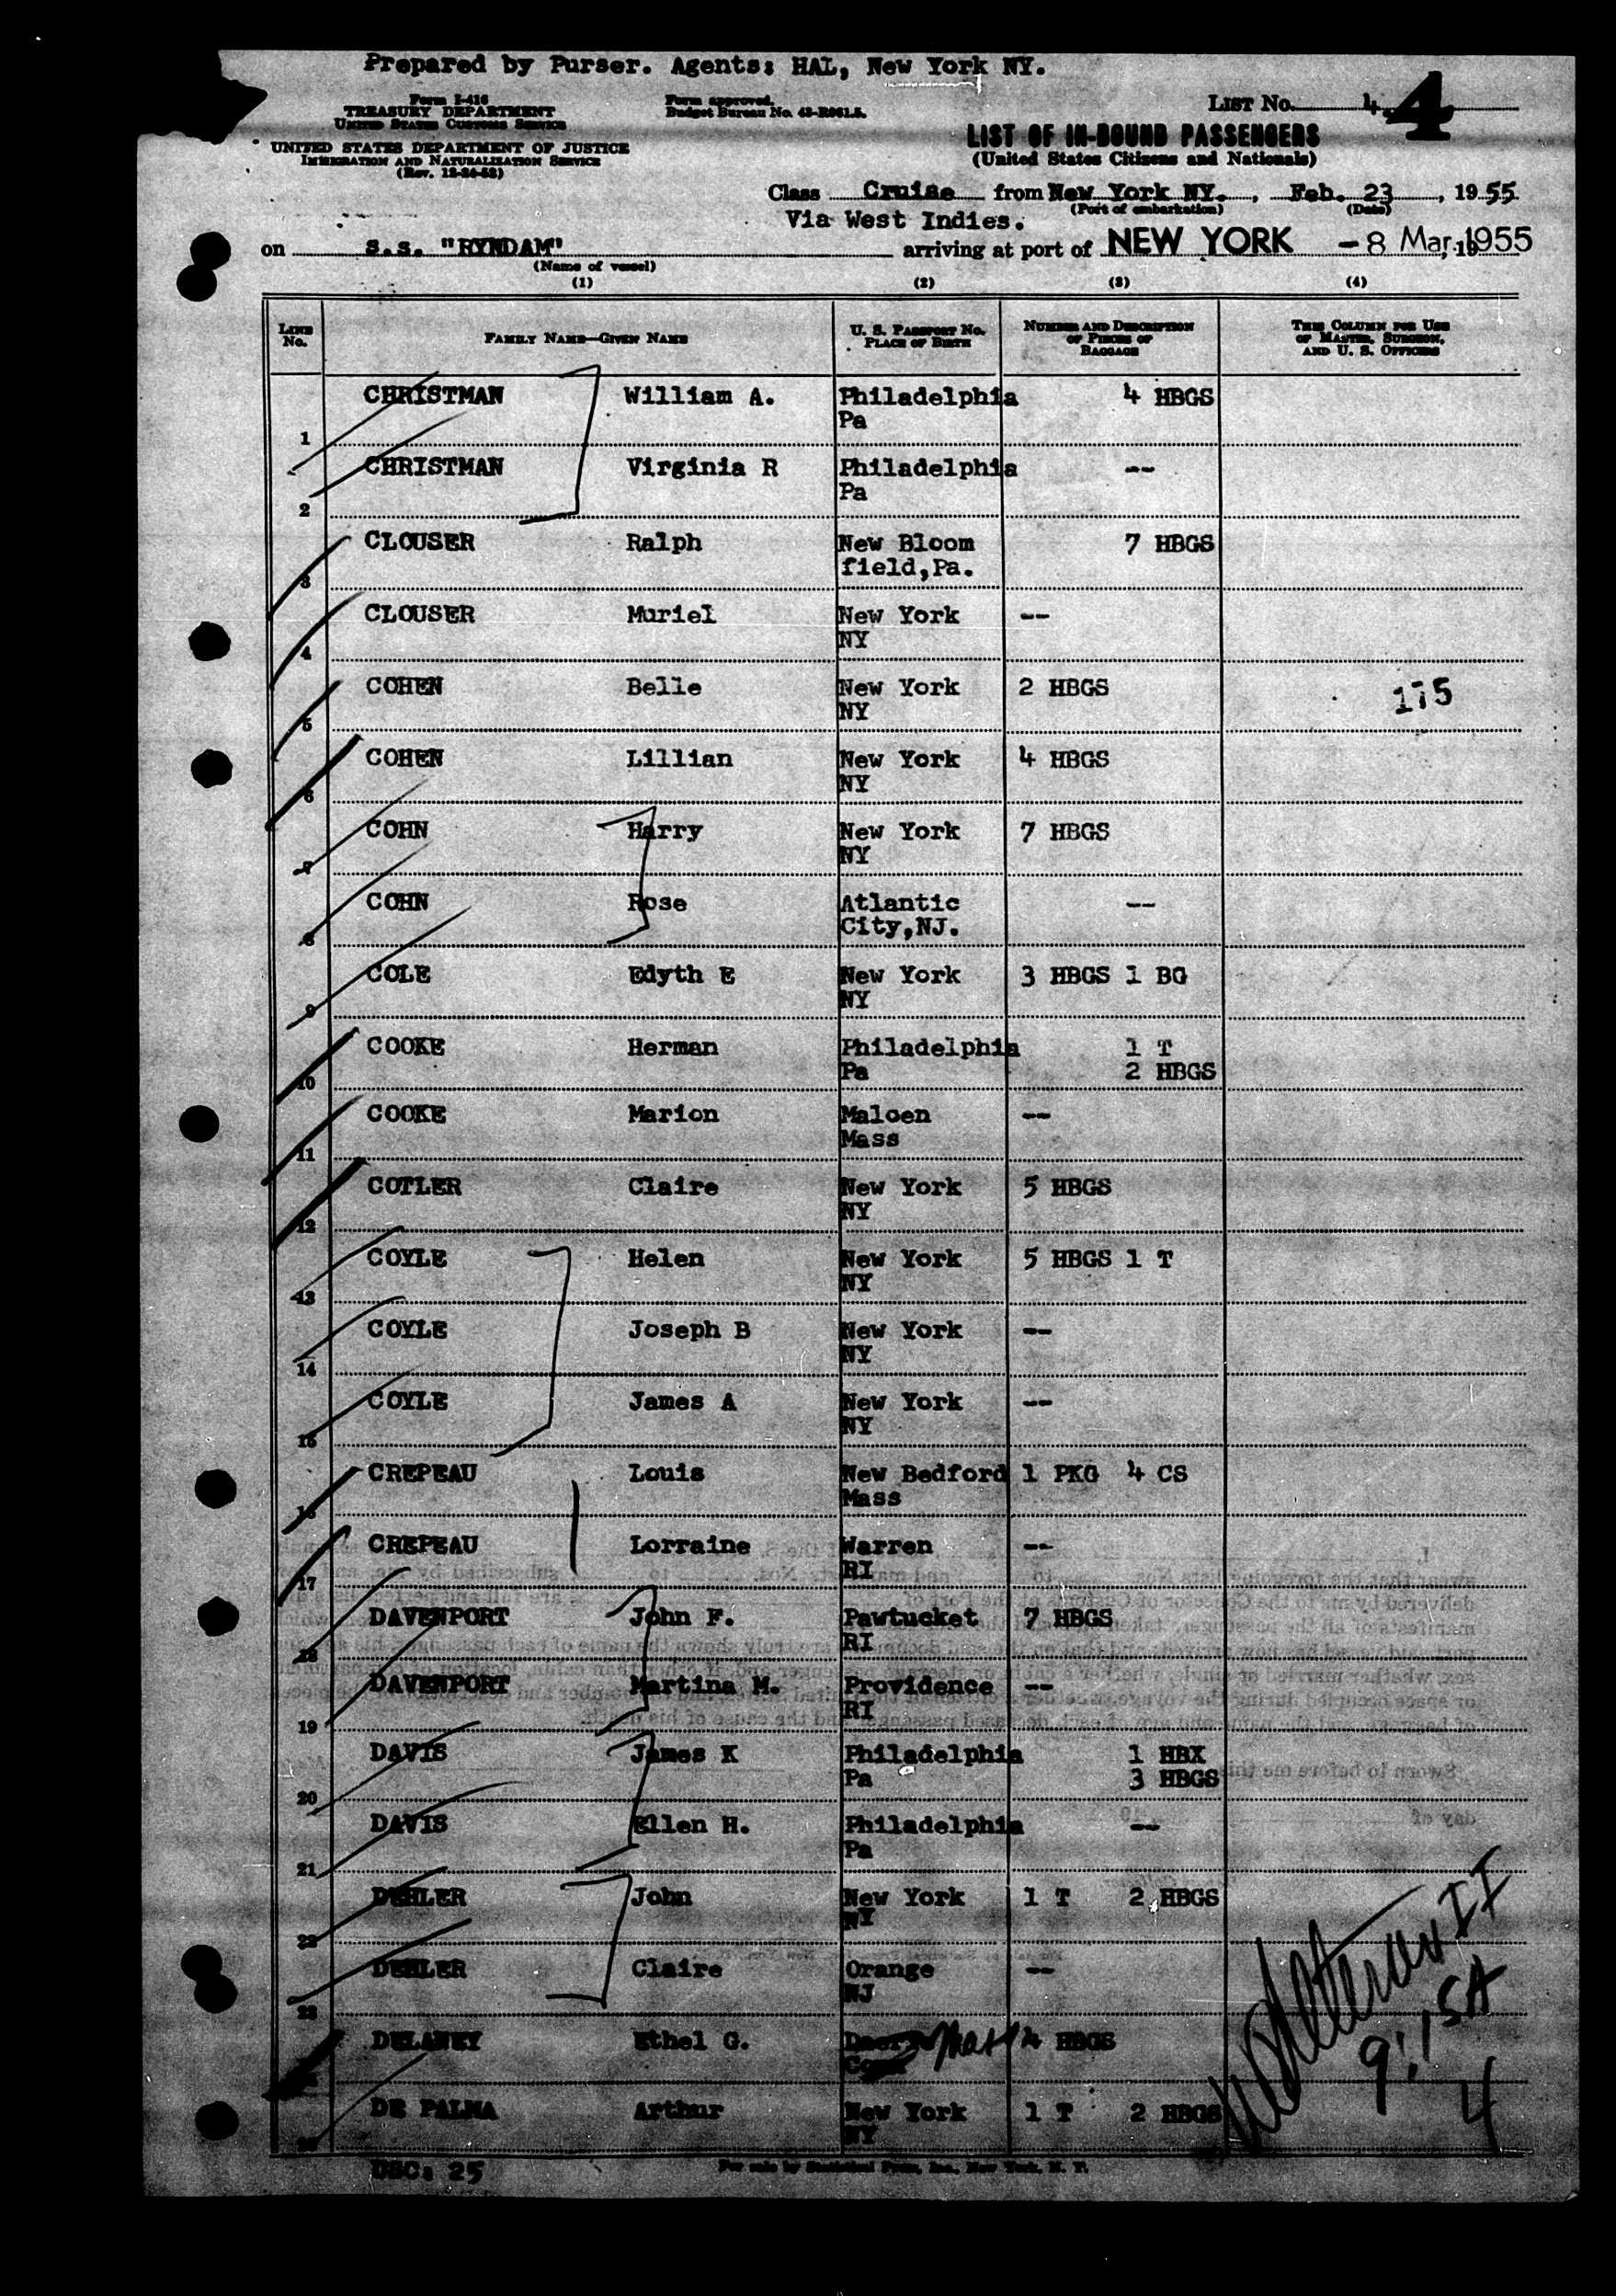 Prepared by Purser. Agents: HAL, New York NY.
Form I-416
TREASURY DEPARTMENT
UNITED STATES CUSTOMS SERVICE
UNITED STATES DEPARTMENT OF JUSTICE
IMMIGRATION AND NATURALIZATION SERVICE
Form approved.
Budget Bureau No. 43-R061.5.
LIST No. 4 4
LIST OF IN-BOUND PASSENGERS
(United States Citizens and Nationals)
Class Cruise from New York NY. , Feb. 23 , 1955
(Port of embarkation) (Date)
Via West Indies.
on s.s. "RYNDAM" arriving at port of NEW YORK -8 Mar. 1955
(Name of vessel)
(1) (2) (3) (4)
LINE No. FAMILY NAME—GIVEN NAME U. S. PASSPORT No. PLACE OF BIRTH NUMBER AND DESCRIPTION OF PIECES OF BAGGAGE THIS COLUMN FOR USE OF MASTER, SURGEON, AND U. S. OFFICERS
1 CHRISTMAN William A. Philadelphia 4 HBGS
Pa
2 CHRISTMAN Virginia R Philadelphia --
Pa
3 CLOUSER Ralph New Bloom 7 HBGS
field,Pa.
4 CLOUSER Muriel New York --
NY
5 COHEN Belle New York 2 HBGS 175
NY
6 COHEN Lillian New York 4 HBGS
NY
7 COHN Harry New York 7 HBGS
NY
8 COHN Rose Atlantic --
City,NJ.
9 COLE Edyth E New York 3 HBGS 1 BG
NY
10 COOKE Herman Philadelphia 1 T
Pa 2 HBGS
11 COOKE Marion Malden --
Mass
12 COTLER Claire New York 5 HBGS
NY
13 COYLE Helen New York 5 HBGS 1 T
NY
14 COYLE Joseph B New York --
NY
15 COYLE James A New York --
NY
16 CREPEAU Louis New Bedford 1 PKG 4 CS
Mass
17 CREPEAU Lorraine Warren --
RI
18 DAVENPORT John F. Pawtucket 7 HBGS
RI
19 DAVENPORT Martina M. Providence --
RI
20 DAVIS James K Philadelphia 1 HBX
Pa 3 HBGS
21 DAVIS Ellen H. Philadelphia --
Pa
22 DEHLER John New York 1 T 2 HBGS
NY
23 DEHLER Claire Orange --
NJ
DELANEY Ethel G. Mass 4 HBGS
DE PALMA Arthur New York 1 T 2 HBGS
NY
9:15A
4
USC: 25
For sale by Statistical Press, Inc., New York, N. Y.